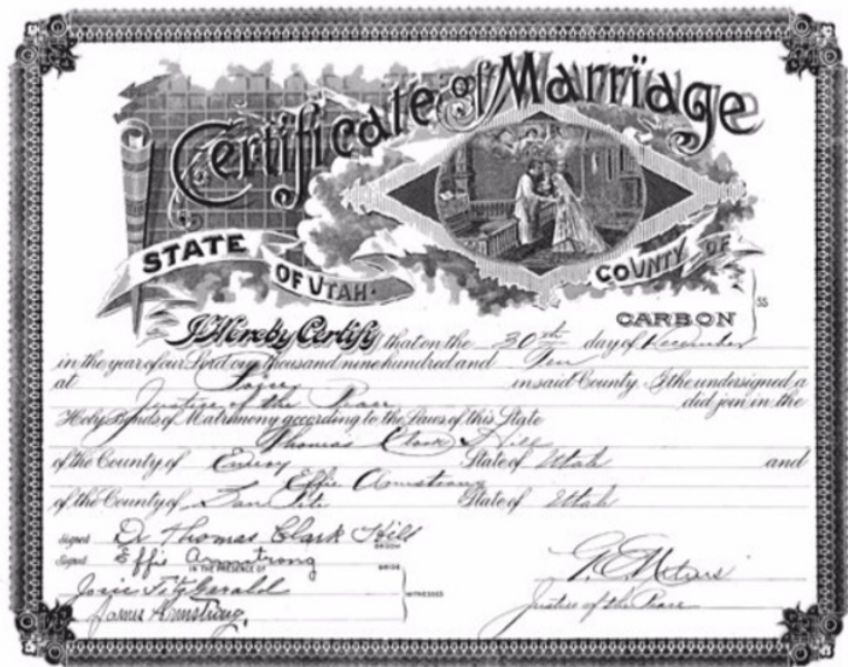 Certificate of Marriage
STATE OF UTAH. COUNTY OF
CARBON } ss
I Hereby Certify that on the 30th day of December
in the year of our Lord one thousand nine hundred and Ten
at Price in said County, I the undersigned a
Justice of the Peace did join in the
Holy Bonds of Matrimony according to the Laws of this State
Thomas Clark Hill
of the County of Emery State of Utah and
Effie Armstrong
of the County of San Pete State of Utah
Signed Dr Thomas Clark Hill
GROOM
Signed Effie Armstrong
BRIDE
IN THE PRESENCE OF
Josie Fitzgerald
James Armstrong,
WITNESSES
Justice of the Peace